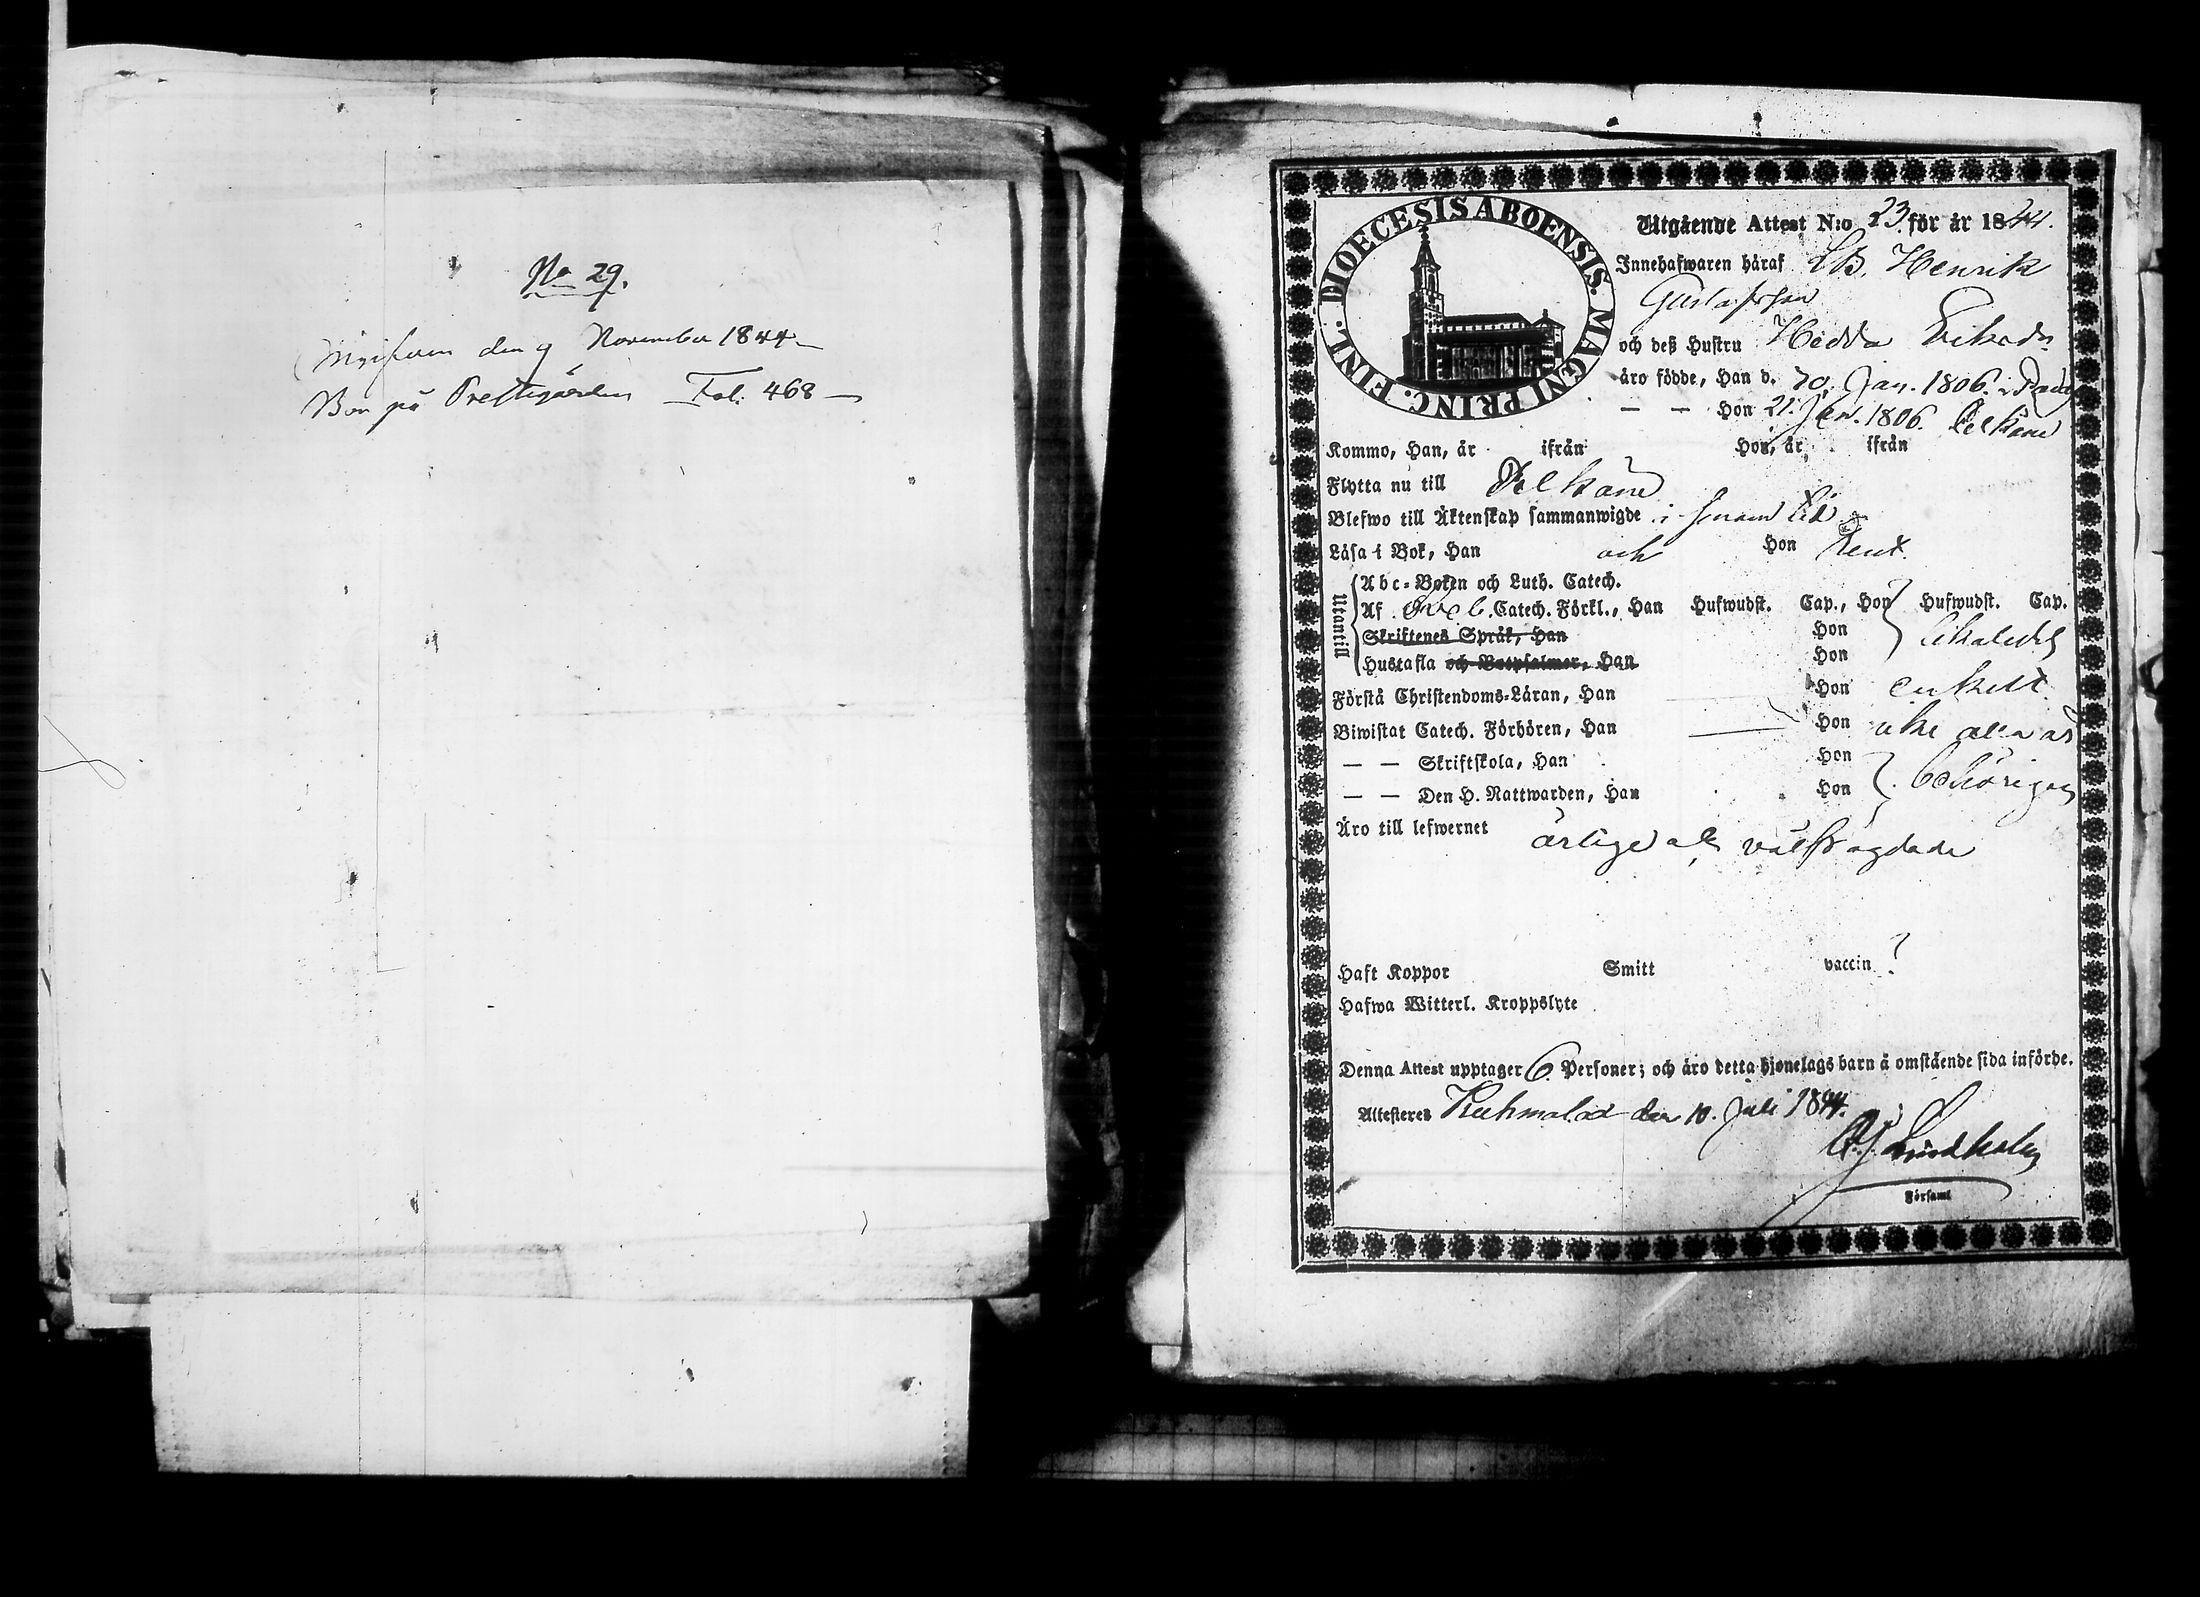 No 29.
den 9 November 1844
Bor på Prestgården Fol: 468
DIOECESIS ABOENSIS. MAGNI PRINC. FINL.
Utgående Attest N:o 23 för år 1844.
Innehafwaren häraf LB. Henrik
Gustafsson
och deß Hustru Hedda Eriksdr
äro födde, Han d. 30. Jan. 1806. i
— — Hon 21. Jan. 1806.
Kommo, Han, år ifrån Hon, år ifrån
Flytta nu till
Blefwo till Äktenskap sammanwigde i tid
Läsa i Bok, Han och Hon rent.
Utantill
Abc-Boken och Luth. Catech.
Af Sveb. Catech. Förkl., Han Hufwudst. Cap., Hon Hufwudst. Cap.
Skriftenes Språk, Han Hon
Hustafla och Botpsalmer, Han Hon
Förstå Christendoms-Läran, Han Hon enkelt
Biwistat Catech. Förhören, Han Hon icke alla år
— — Skriftskola, Han Hon
— — Den H. Nattwarden, Han Hon behörigen
Äro till lefwernet ärlige och välfrägdade
Haft Koppor Smitt vaccin ?
Hafwa Witterl. Kroppslyte
Denna Attest upptager 6. Personer; och äro detta hjonelags barn å omstående sida införde.
Attesteres Kuhmalax den 10. Juli 1844.
Lindholm
Församl